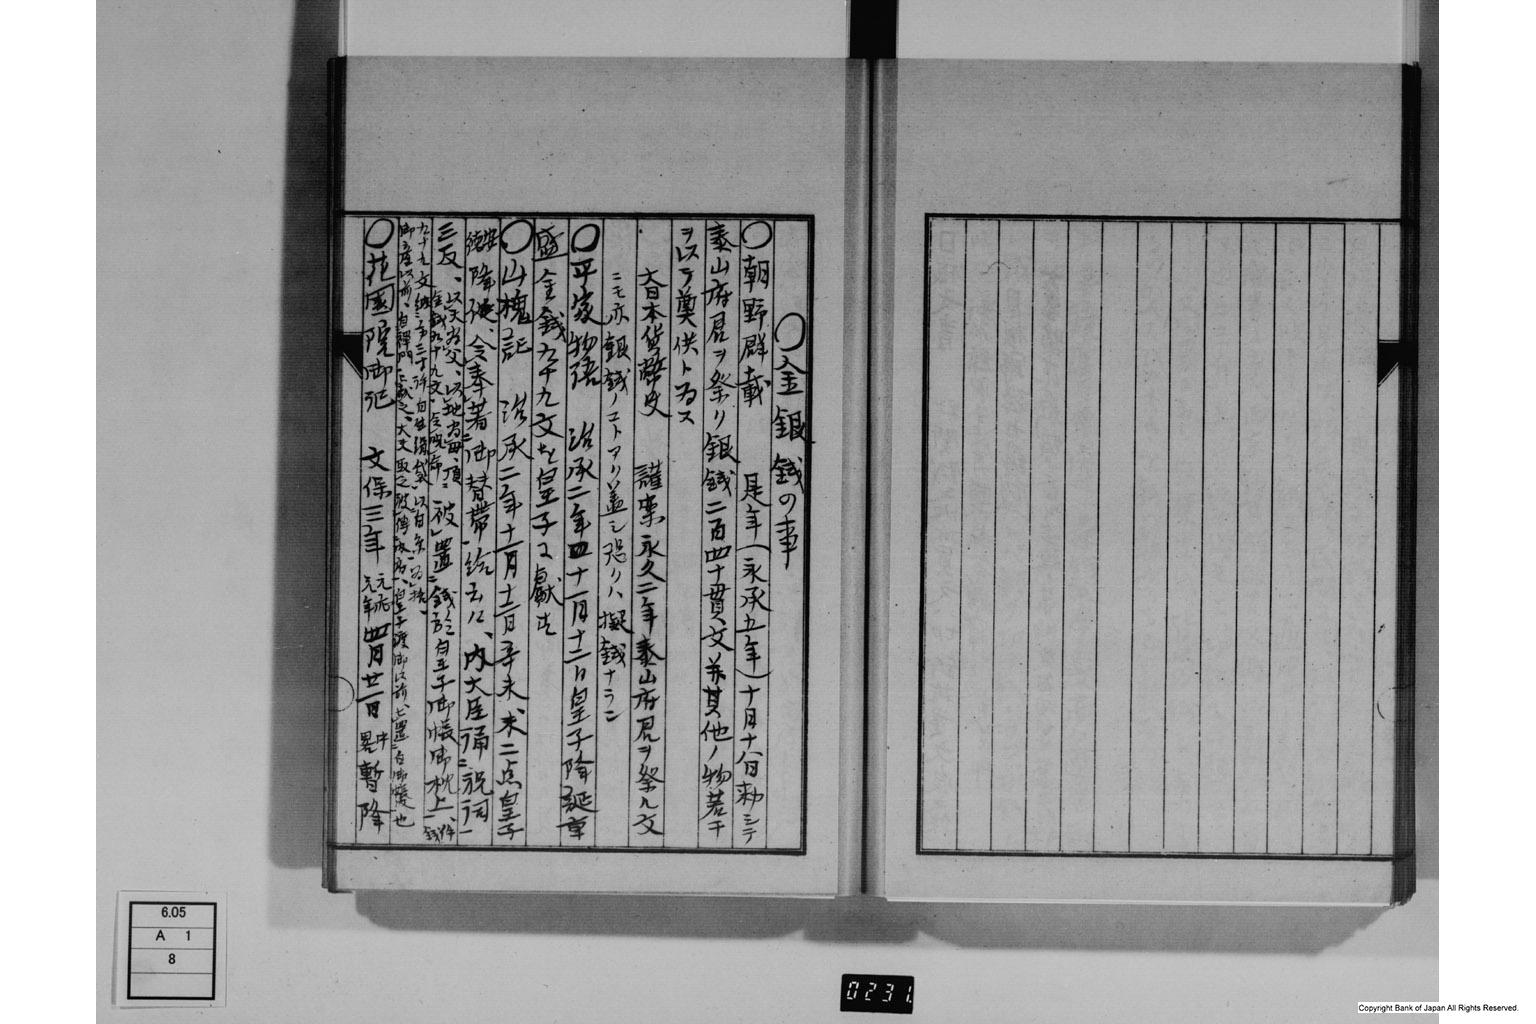 〇金銀銭の事
〇朝野群載　是年(永承五年)十月十八日勅シテ
泰山府君ヲ祭リ銀銭二百四十貫文并其他ノ物若干
ヲ以テ奠供トゐス
大日本貨幣史　謹案永久二年泰山府君ヲ祭ル文
ニモ亦銀銭ノコトアリ蓋シ恐クハ擬銭ナラン
〇平家物語　治承二年四十一月十二日皇子降誕章
盛金銭九十九文を皇子に献す
〇山槐記　治承二年十一月十二日辛未未二点皇子
降誕、令奉著御替帶給云々、内大臣誦祝詞
三反、以天為父、以地為母、頂 被置銭於皇子御帳御枕上
金銭九十九文令祝
九十九文
御産以前、自禅門
〇花園院御記　文保三年 元応元年 四月廿一日 暫降
6.05
A 1
8
0231.
Copyright Bank of Japan All Rights Reserved.